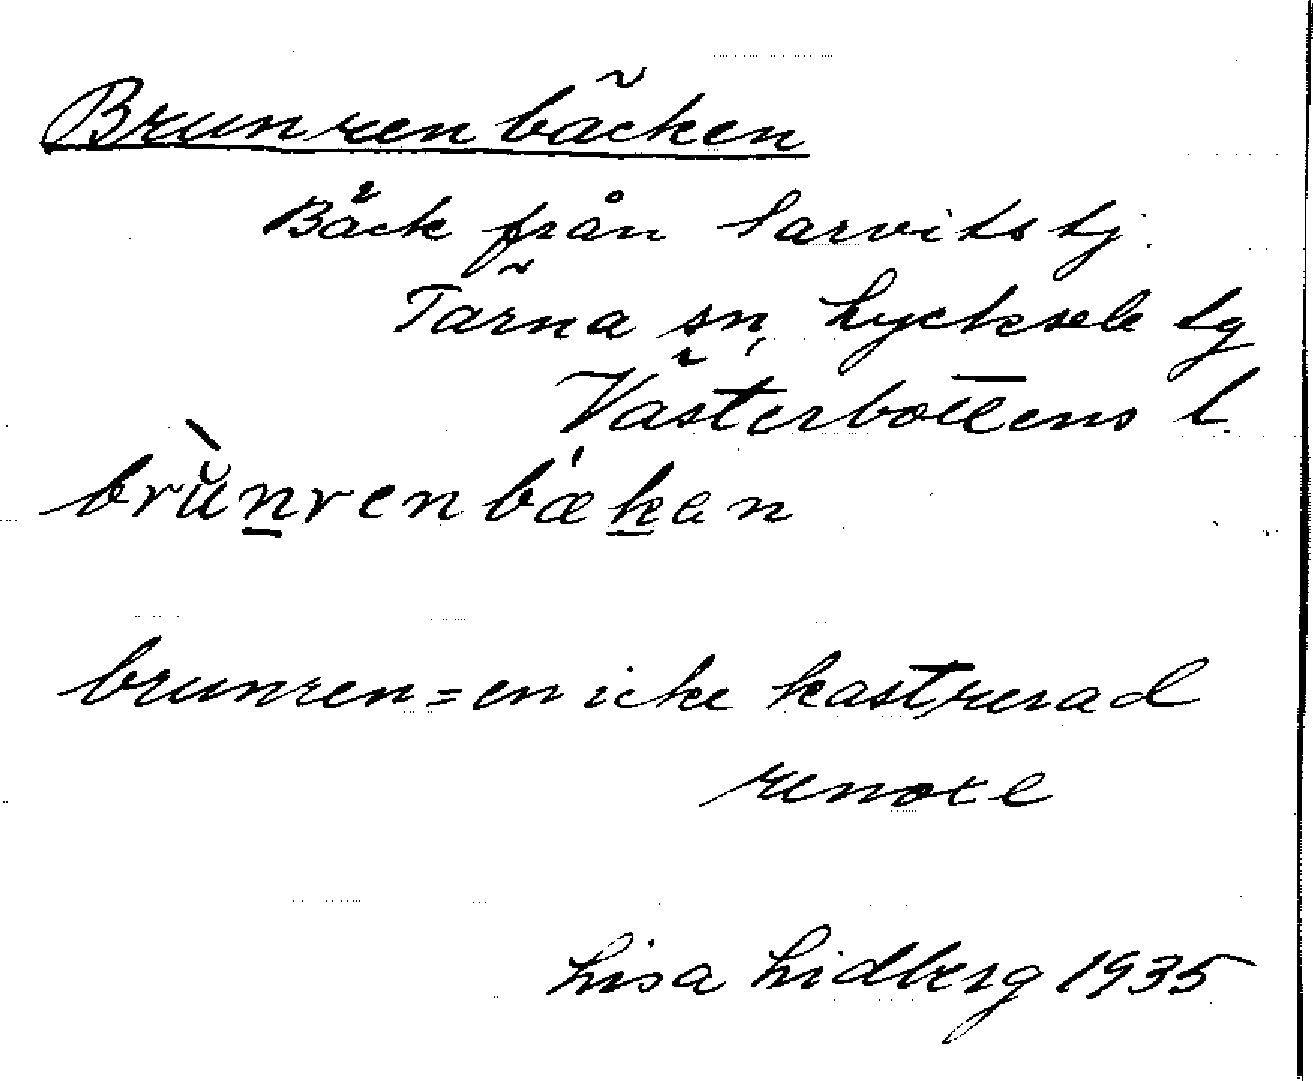 Brunrenbäcken
Bäck från Sarvitstj.
Tärna sn, Lycksele lg
Västerbottens l.
brùn̲renbæk̲en
brunren = en icke kastrerad
renoxe
Lisa Lidberg 1935